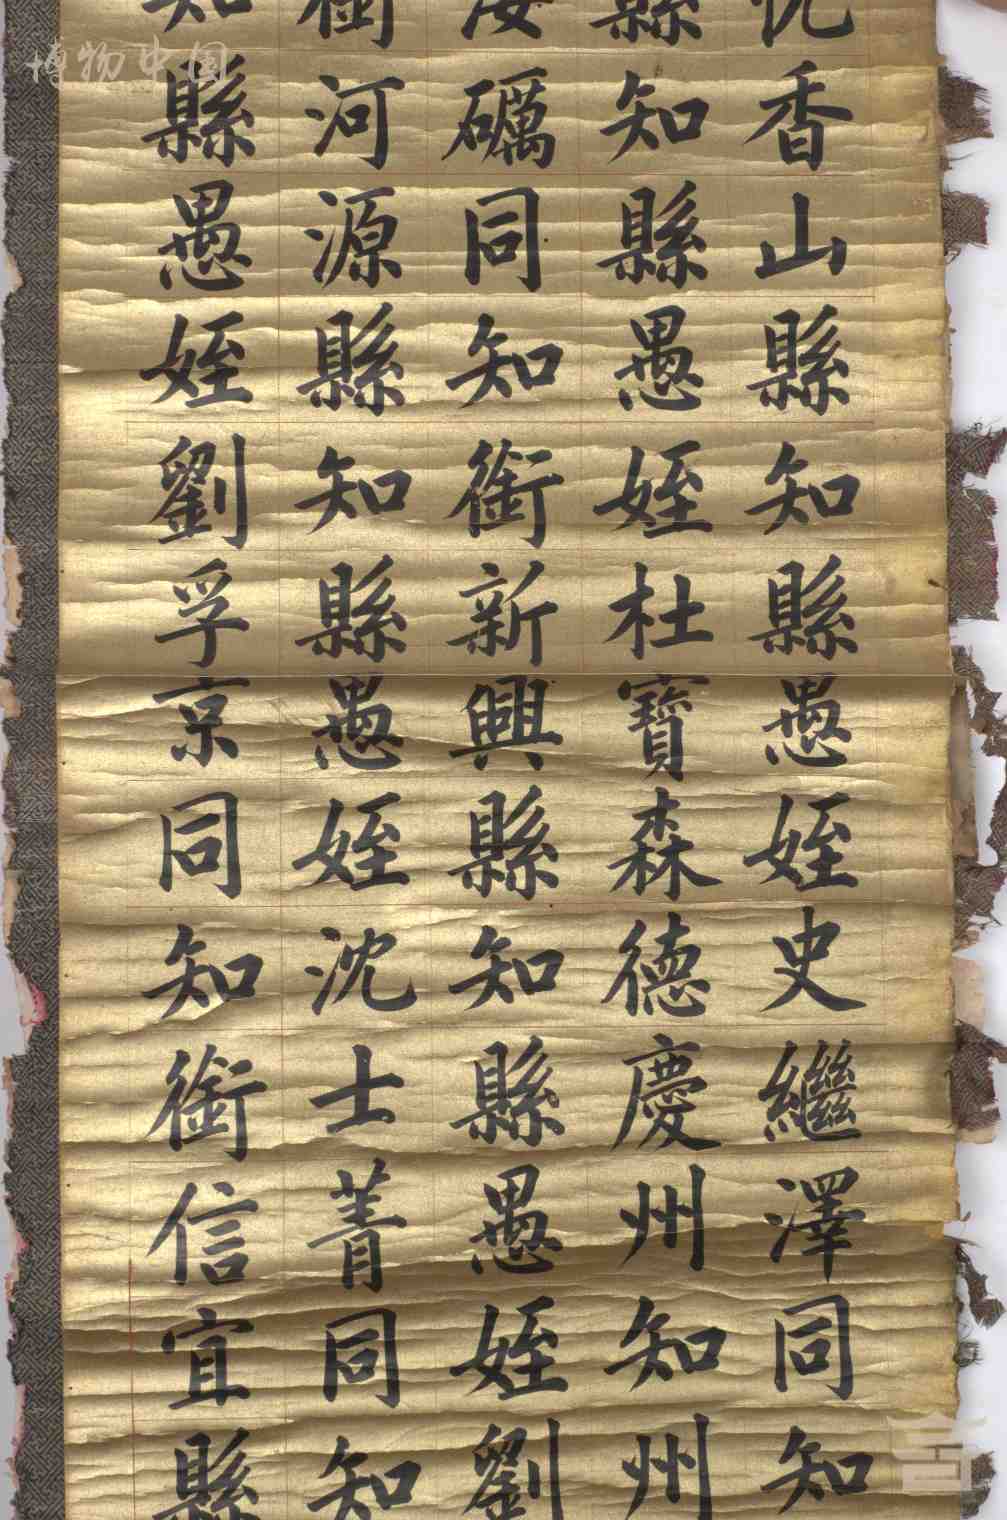 香山縣知縣愚姪史繼澤同知
縣知縣愚姪杜寶森德慶州知州
汝礪同知銜新興縣知縣愚姪劉
銜河源縣知縣愚姪沈士菁同知
知縣愚姪劉孚京同知銜信宜縣
博物中国